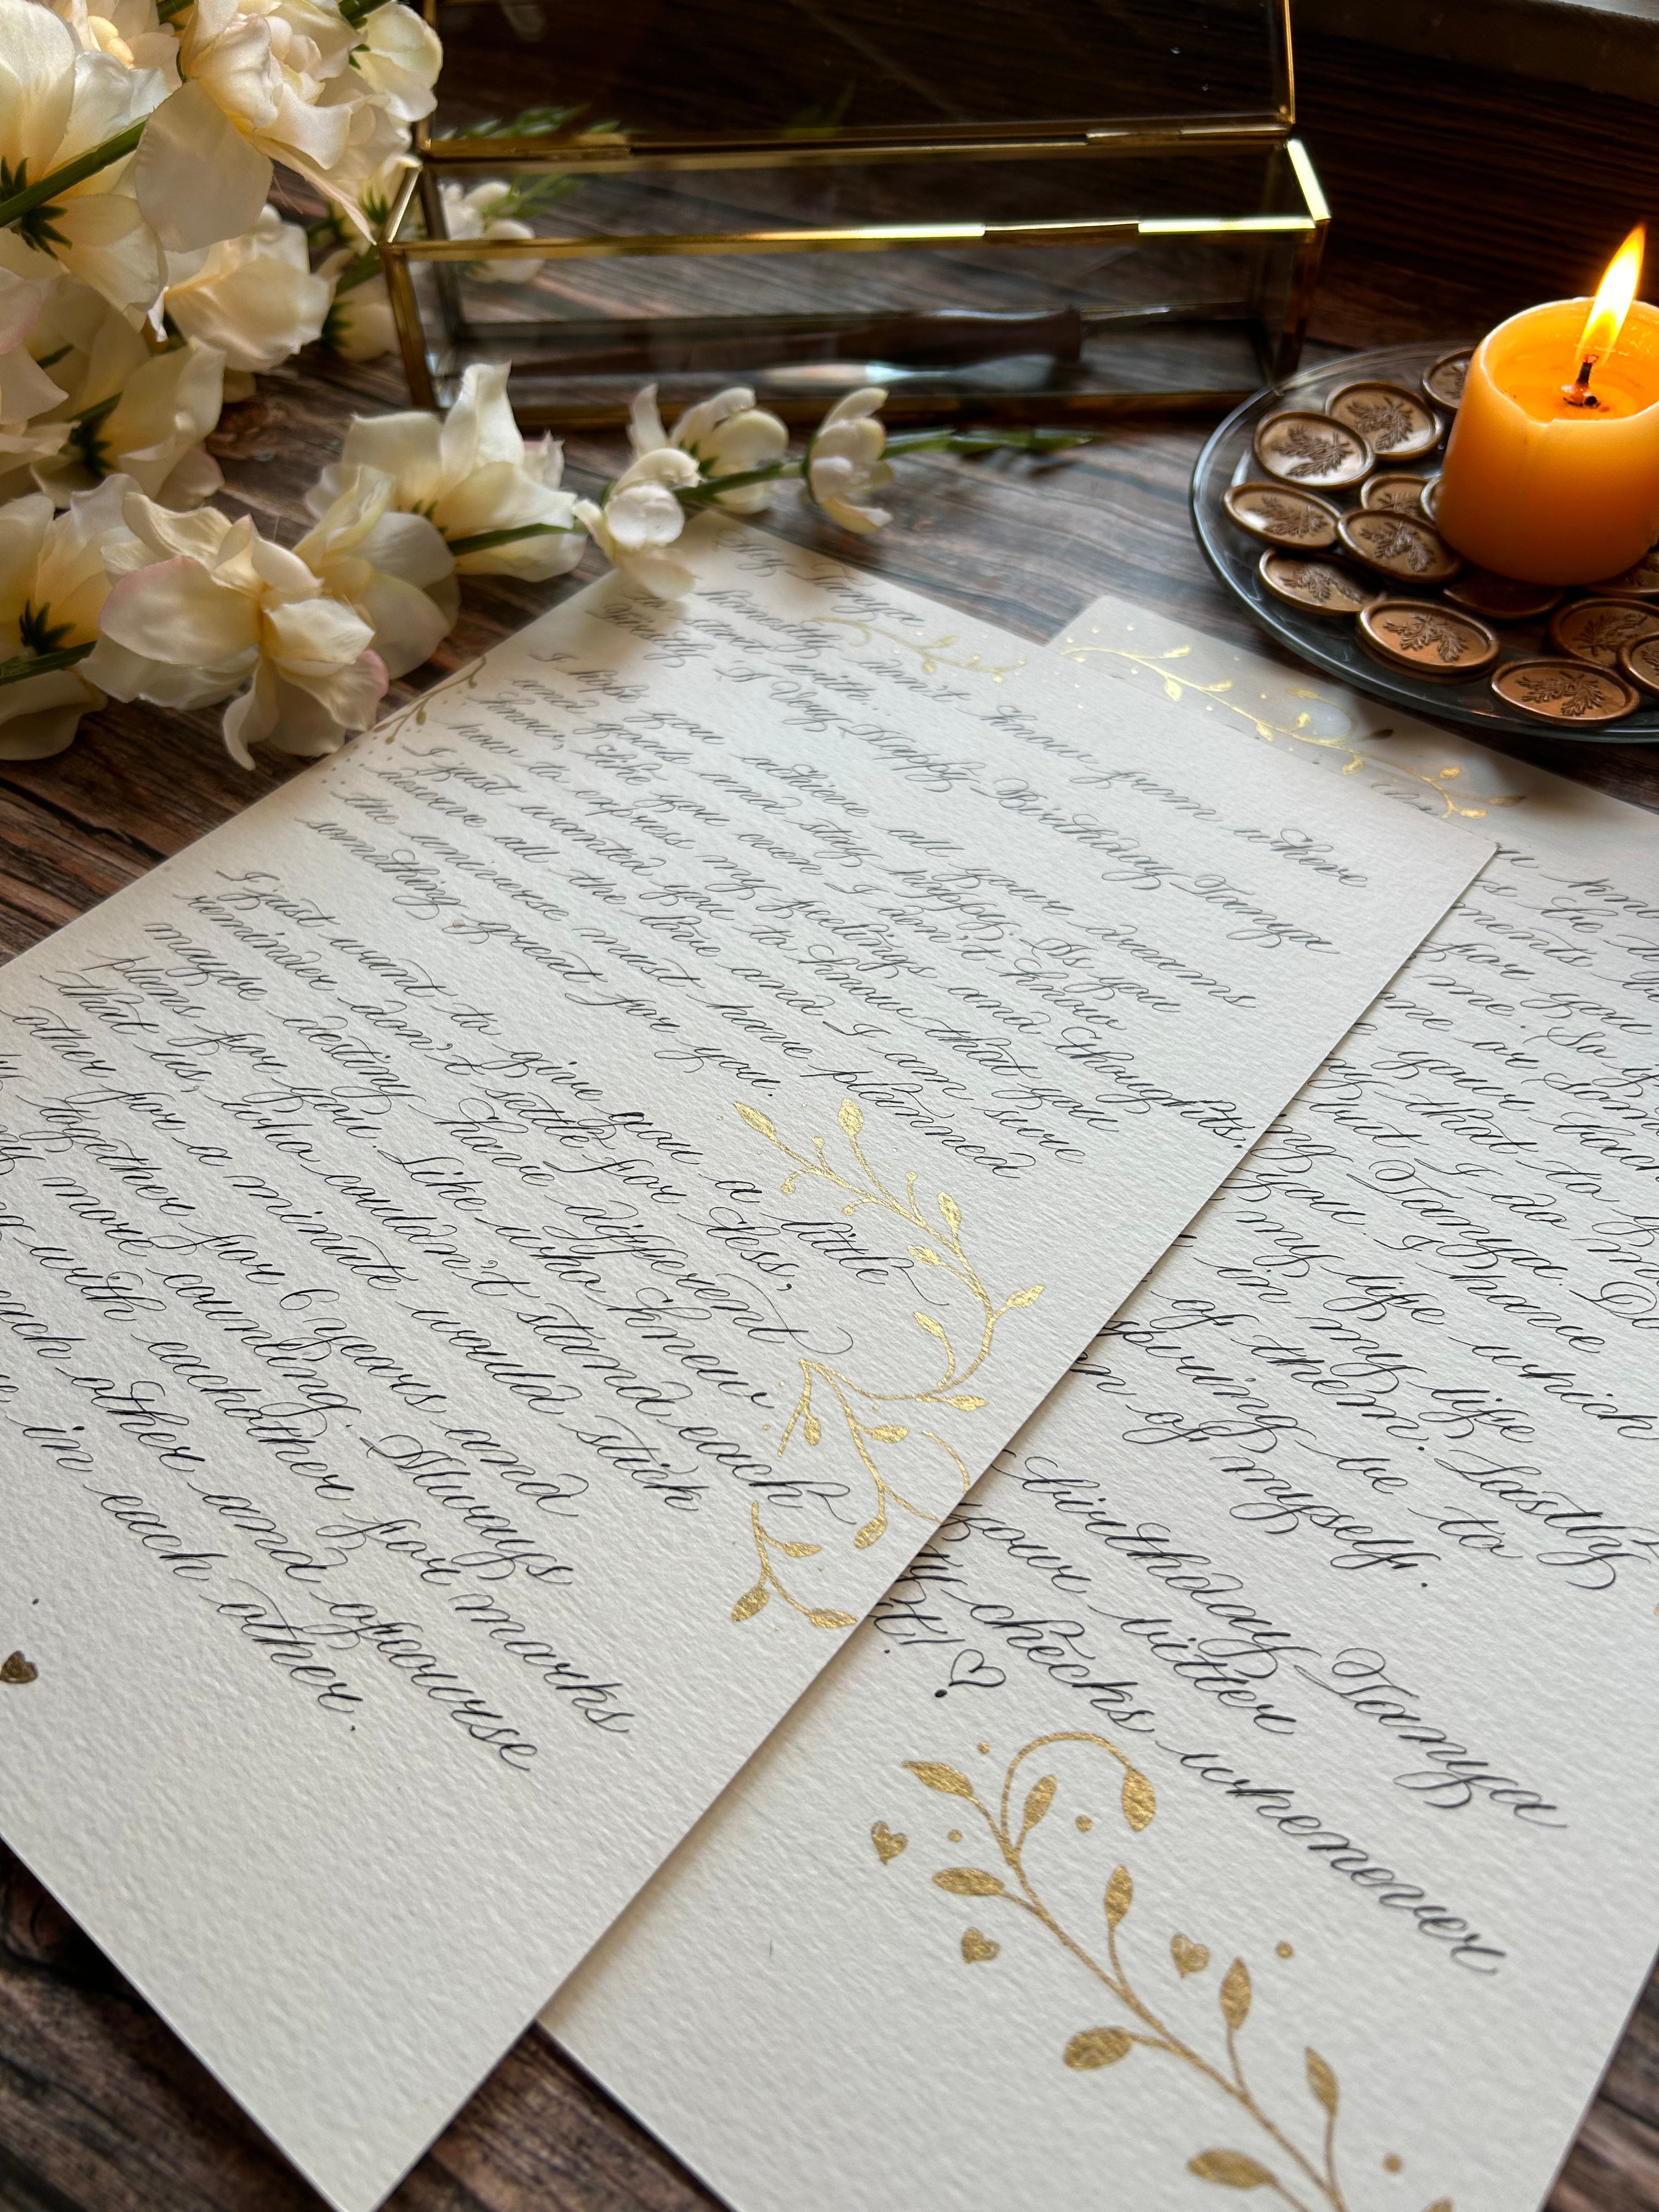 Hey Tanya
honestly don't know from where
to start with.
Firstly I Say Happy Birthday Tanya
I hope you achive all your dreams
and goals and stay happy. As you
know, like you even I don't know
how to express my feelings and thoughts.
I just wanted you to know that you
deserve all the love and I am sure
the universe must have planned
something great for you.
I just want to give you a little
reminder don't settle for less,
maybe destiny have different
plans for you. Like who knew
that us, who couldn't stand each
other for a minute would stick
together for 6 years and
more counting. Always
with eachother for marks
each other and ofcourse
in each other.
for you
me. So
me or
your that to
but I do
you Tanya.
I have
my life which
in my life
of them. Lastly
giving be to
of myself.
birthday Tanya
your bitter
checks whenever